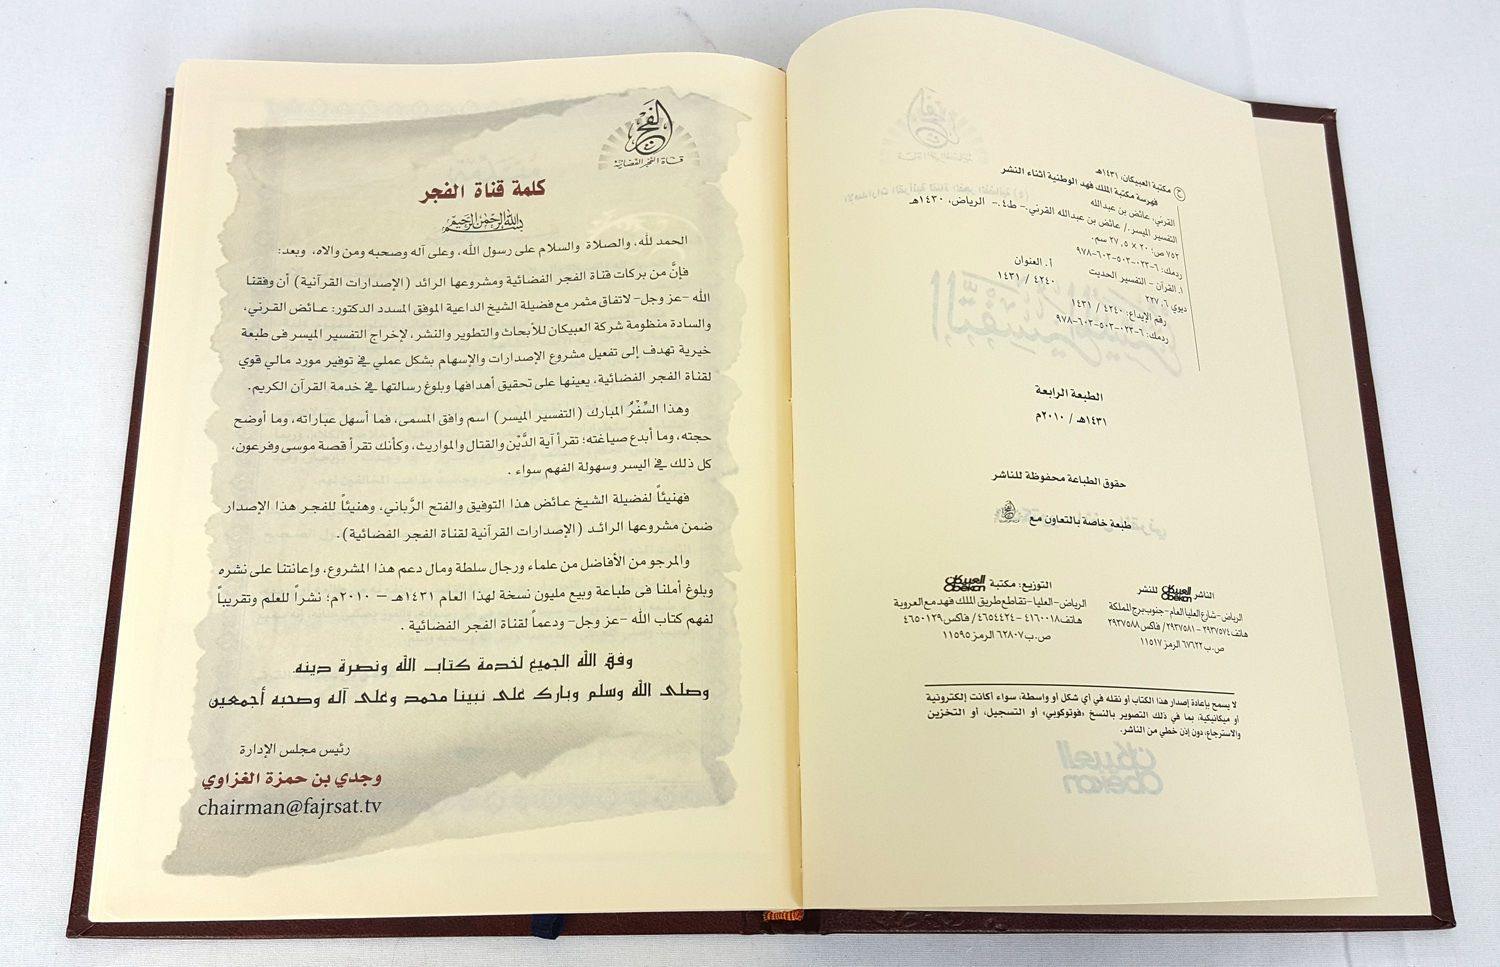 © مكتبة العبيكان، ١٤٣١هـ
فهرسة مكتبة الملك فهد الوطنية أثناء النشر
القرني، عائض بن عبدالله
التفسير الميسر./ عائض بن عبدالله القرني.- ط٤.- الرياض، ١٤٣٠هـ
٧٥٢ ص؛ ٢٠ × ٢٧,٥ سم.
ردمك: ٦-٠٢٣-٥٠٣-٦٠٣-٩٧٨
١. القرآن - التفسير الحديث أ. العنوان
ديوي ٢٢٧,٦ ٤٢٤٠ / ١٤٣١
رقم الإيداع: ٤٢٤٠ / ١٤٣١
ردمك: ٦-٠٢٣-٥٠٣-٦٠٣-٩٧٨
الطبعة الرابعة
١٤٣١هـ / ٢٠١٠م
حقوق الطباعة محفوظة للناشر
طبعة خاصة بالتعاون مع
الناشر العبيكان Obekan للنشر
الرياض - شارع العليا العام - جنوب برج المملكة
هاتف ٢٩٣٧٥٧٤ - ٢٩٣٧٥٨١ / فاكس ٢٩٣٧٥٨٨
ص.ب ٦٧٦٢٢ الرمز ١١٥١٧
التوزيع: مكتبة العبيكان Obekan
الرياض - العليا - تقاطع طريق الملك فهد مع العروبة
هاتف ٤١٦٠٠١٨ - ٤٦٥٤٤٢٤ / فاكس ٤٦٥٠١٢٩
ص.ب ٦٢٨٠٧ الرمز ١١٥٩٥
لا يسمح بإعادة إصدار هذا الكتاب أو نقله في أي شكل أو واسطة، سواء أكانت إلكترونية
أو ميكانيكية، بما في ذلك التصوير بالنسخ «فوتوكوبي» أو التسجيل، أو التخزين
والاسترجاع، دون إذن خطي من الناشر.
الفجر
قناة الفجر الفضائية
كلمة قناة الفجر
بسم الله الرحمن الرحيم
الحمد لله، والصلاة والسلام على رسول الله، وعلى آله وصحبه ومن والاه، وبعد:
فإنَّ من بركات قناة الفجر الفضائية ومشروعها الرائد (الإصدارات القرآنية) أن وفقنا
الله -عز وجل- لاتفاق مثمر مع فضيلة الشيخ الداعية الموفق المسدد الدكتور: عائض القرني،
والسادة منظومة شركة العبيكان للأبحاث والتطوير والنشر، لإخراج التفسير الميسر في طبعة
خيرية تهدف إلى تفعيل مشروع الإصدارات والإسهام بشكل عملي في توفير مورد مالي قوي
لقناة الفجر الفضائية، يعينها على تحقيق أهدافها وبلوغ رسالتها في خدمة القرآن الكريم.
وهذا السِّفْرُ المبارك (التفسير الميسر) اسم وافق المسمى، فما أسهل عباراته، وما أوضح
حجته، وما أبدع صياغته؛ تقرأ آية الدَّيْن والقتال والمواريث، وكأنك تقرأ قصة موسى وفرعون،
كل ذلك في اليسر وسهولة الفهم سواء .
فهنيئاً لفضيلة الشيخ عائض هذا التوفيق والفتح الرَّباني، وهنيئاً للفجر هذا الإصدار
ضمن مشروعها الرائد (الإصدارات القرآنية لقناة الفجر الفضائية).
والمرجو من الأفاضل من علماء ورجال سلطة ومال دعم هذا المشروع، وإعانتنا على نشره
وبلوغ أملنا فى طباعة وبيع مليون نسخة لهذا العام ١٤٣١هـ – ٢٠١٠م؛ نشراً للعلم وتقريباً
لفهم كتاب الله -عز وجل- ودعماً لقناة الفجر الفضائية .
وفق الله الجميع لخدمة كتاب الله ونصرة دينه.
وصلى الله وسلم وبارك على نبينا محمد وعلى آله وصحبه أجمعين
رئيس مجلس الإدارة
وجدي بن حمزة الغزاوي
chairman@fajrsat.tv